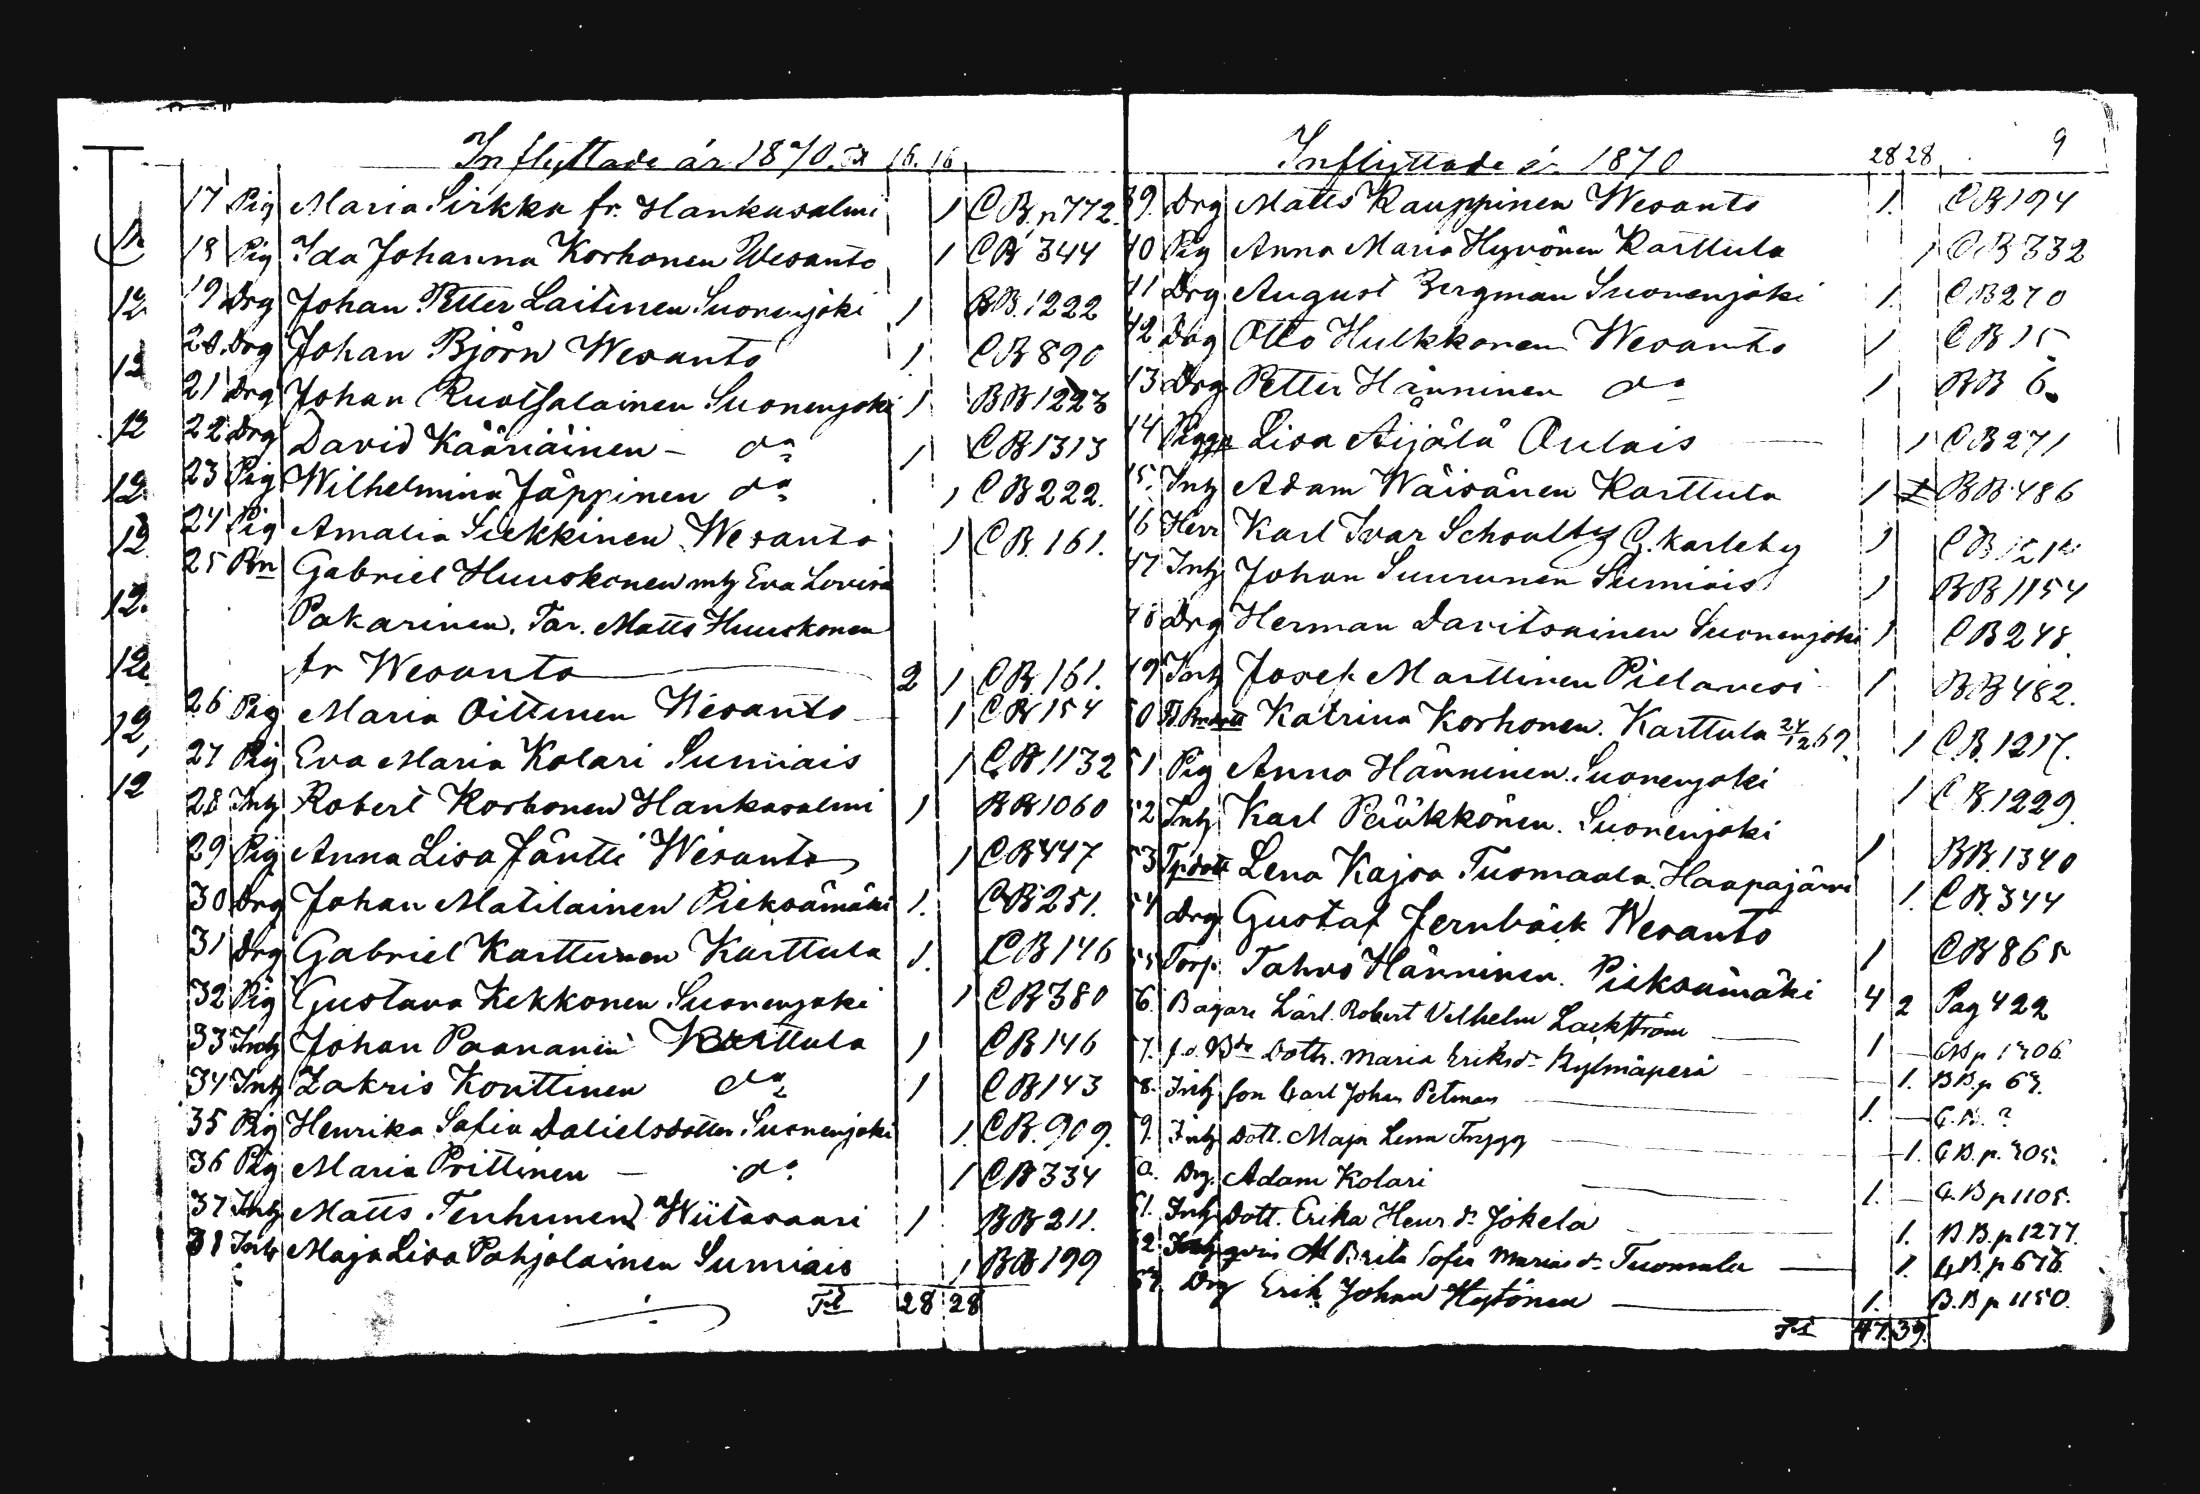 Inflyttade år 1870. Tr 16. 16
17 Pig Maria Sirkka fr. Hankasalmi 1 CB. p 772.
18 Pig Ida Johanna Korhonen Wesanto 1 CB 344
19 Drg Johan Petter Laitinen Suonenjoki 1 BB. 1222
20. Drg Johan Björn Wesanto 1. CB 890
21 Drg Johan Ruotsalainen Suonenjoki 1 BB 1223
22 Drg David Kääriäinen - do 1 CB 1313
23 Pig Wilhelmina Jäppinen do 1 CB 222.
24 Pig Amalia Siekkinen Wesanto 1 CB. 161.
25 Bn Gabriel Huuskonen mh Eva Lovisa
Pakarinen. Far. Matts Huuskonen
fr Wesanto 2 1 CB. 161.
26 Pig Maria Oittinen Wesanto 1 CB 154
27 Pig Eva Maria Kolari Sumiais 1 CB. 1132
28 Inh Robert Korhonen Hankasalmi 1 BB 1060
29 Pig Anna Lisa Jäntti Wesanto 1 CB 447
30 Drg Johan Matilainen Pieksämäki 1. CB 251.
31 Drg Gabriel Karttunen Karttula 1. CB 146
32 Pig Gustava Kekkonen Suonenjoki 1 CB 380
33 Inh Johan Paananen Karttula 1 CB 146
34 Inh Zakris Konttinen do 1 CB 143
35 Pig Henrika Sofia Danielsdotter Suonenjoki 1. CB. 909.
36 Pig Maria Prittinen - do 1 CB 334
37 Inh Matts Tenhunen Wiitasaari 1 BB 211.
38 Inh Maja Lisa Pohjolainen Sumiais 1 BB 199
Tr 28 28
Inflyttade år 1870 28 28 9
39. Drg Matts Kauppinen Wesanto 1. CB 194
40 Pig Anna Maria Hyvönen Karttula 1 CB 332
41 Drg August Bergman Suonenjoki 1. CB 270
42 Drg Otto Hulkkonen Wesanto 1 CB 15
43 Drg Petter Hänninen do 1 BB 6.
44 Pigga Lisa Äijälä Oulais 1 CB 271
45. Inh Adam Wäisänen Karttula 1 BB 486
46 Herr Karl Ivar Schoultz G. Karleby 1
47 Inh Johan Suurunen Sumiais 1 BB 1154
48 Drg Herman Davitsainen Suonenjoki 1 CB 248.
49 Inh Josef Marttinen Pielavesi 1 BB 482.
50 Katrina Korhonen. Karttula 24/12 69. 1 CB. 1217.
51 Pig Anna Hänninen. Suonenjoki 1 CB. 1229.
52 Inh Karl Pääkkönen. Suonenjoki 1 BB. 1340
53 Tp. dott Lena Kajsa Tuomaala. Haapajärvi 1. CB. 344
54 Drg Gustaf Jernbäck Wesanto 1 CB 865
55 Torp. Tahvo Hänninen. Pieksämäki 4 2 Pag 422
56. Bagare Lärl. Robert Vilhelm Lackström 1 - CB p 1306
57. f.d. Bde Dottr. Maria Eriksdr Kylmäperä 1. BB. p 69.
58. Inh son Carl Johan Petman 1. - C.B. ?
59. Inh Dott. Maja Lena Trygg 1. CB. p. 305.
60. Drg. Adam Kolari 1. - C.B p 1105.
61. Inh Dott. Erika Henr. dr Jokela 1. B.B. p 1277.
62 Brita Sofia Mariasdr Tuomala 1. CB. p 676.
63. Drg Erik Johan Hytönen 1. B.B p 1150.
Tr 47. 39.
12
12
12
12.
12
12.
12.
12,
12